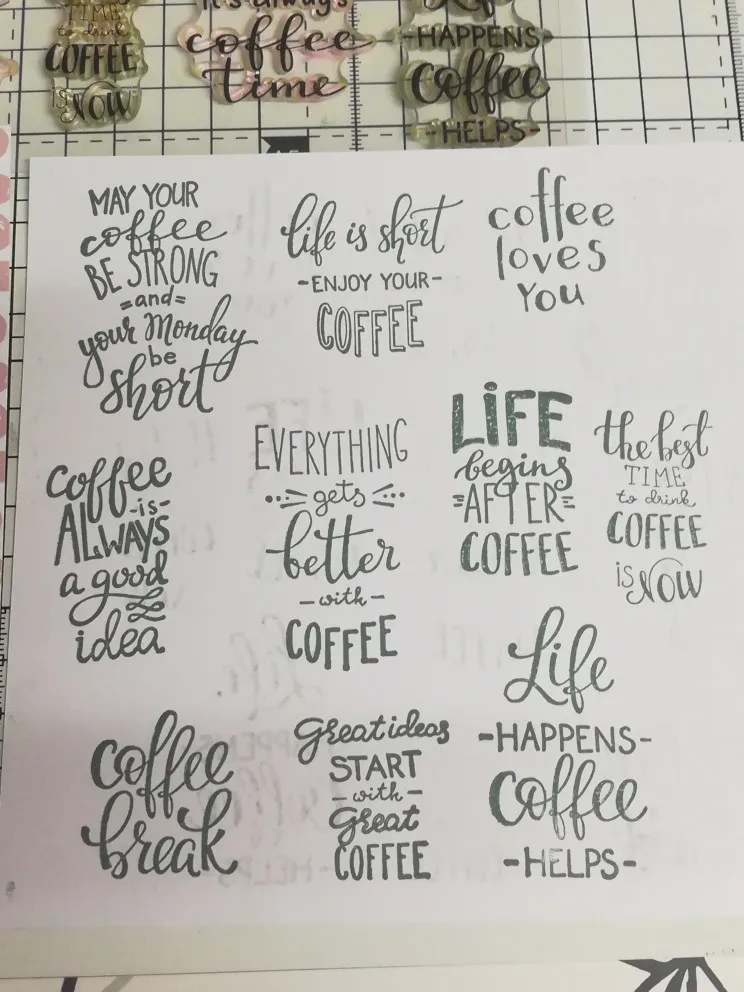 TIME
to drink
COFFEE
IS NOW
it's always
coffee
time
Life
-HAPPENS-
Coffee
-HELPS-
MAY YOUR
coffee
BE STRONG
=and=
your Monday
be
short
life is short
-ENJOY YOUR-
COFFEE
coffee
loves
You
coffee
-is-
ALWAYS
a good
idea
EVERYTHING
gets
better
-with-
COFFEE
LiFE
begins
=AFTER=
COFFEE
the best
TIME
to drink
COFFEE
is NOW
coffee
break
Great ideas
START
-with-
Great
COFFEE
Life
-HAPPENS-
Coffee
-HELPS-